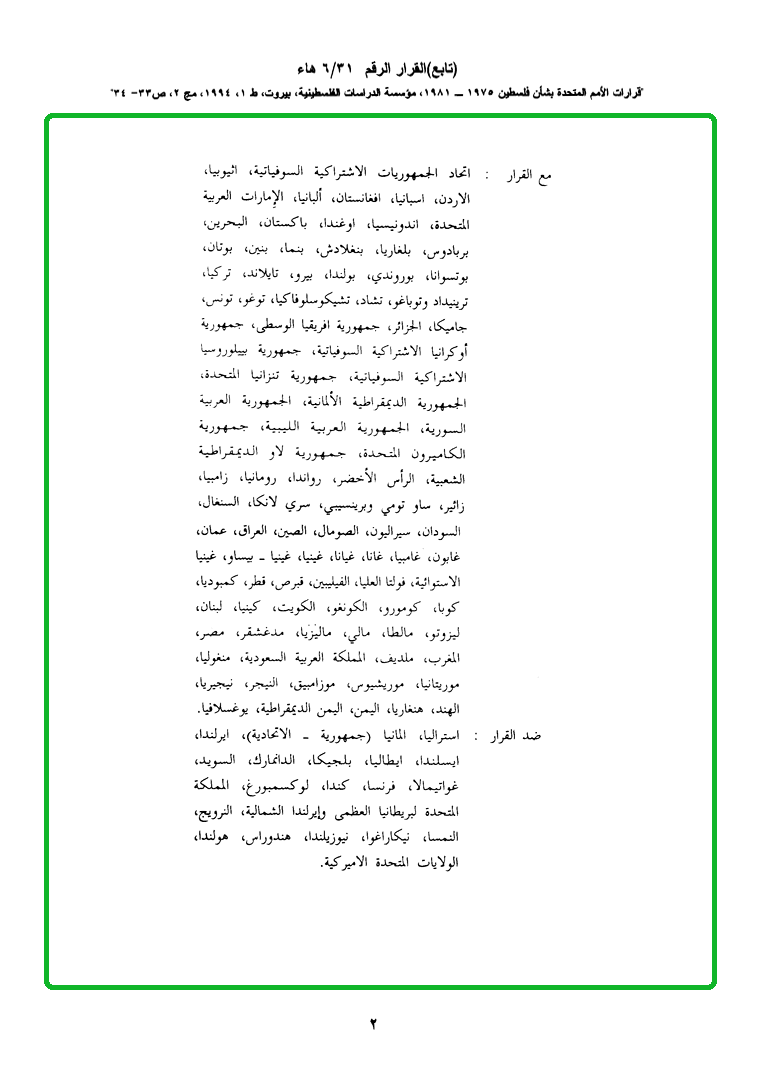 (تابع)القرار الرقم ٦/٣١ هاء
"قرارات الأمم المتحدة بشأن فلسطين ١٩٧٥ ــ ١٩٨١، مؤسسة الدراسات الفلسطينية، بيروت، ط ١، ١٩٩٤، مج ٢، ص٣٣- ٣٤"
مع القرار : اتحاد الجمهوريات الاشتراكية السوفياتية، اثيوبيا،
الاردن، اسبانيا، افغانستان، ألبانيا، الإمارات العربية
المتحدة، اندونيسيا، اوغندا، باكستان، البحرين،
بربادوس، بلغاريا، بنغلادش، بنما، بنين، بوتان،
بوتسوانا، بوروندي، بولندا، بيرو، تايلاند، تركيا،
ترينيداد وتوباغو، تشاد، تشيكوسلوفاكيا، توغو، تونس،
جاميكا، الجزائر، جمهورية افريقيا الوسطى، جمهورية
أوكرانيا الاشتراكية السوفياتية، جمهورية بييلوروسيا
الاشتراكية السوفياتية، جمهورية تنزانيا المتحدة،
الجمهورية الديمقراطية الألمانية، الجمهورية العربية
السورية، الجمهورية العربية الليبية، جمهورية
الكاميرون المتحدة، جمهورية لاو الديمقراطية
الشعبية، الرأس الأخضر، رواندا، رومانيا، زامبيا،
زائير، ساو تومي وبرينسيبي، سري لانكا، السنغال،
السودان، سيراليون، الصومال، الصين، العراق، عمان،
غابون، غامبيا، غانا، غيانا، غينيا، غينيا ـ بيساو، غينيا
الاستوائية، فولتا العليا، الفيليبين، قبرص، قطر، كمبوديا،
كوبا، كومورو، الكونغو، الكويت، كينيا، لبنان،
ليزوتو، مالطا، مالي، ماليزيا، مدغشقر، مصر،
المغرب، ملديف، المملكة العربية السعودية، منغوليا،
موريتانيا، موريشيوس، موزامبيق، النيجر، نيجيريا،
الهند، هنغاريا، اليمن، اليمن الديمقراطية، يوغسلافيا.
ضد القرار : استراليا، المانيا (جمهورية ـ الاتحادية)، ايرلندا،
ايسلندا، ايطاليا، بلجيكا، الدانمارك، السويد،
غواتيمالا، فرنسا، كندا، لوكسمبورغ، المملكة
المتحدة لبريطانيا العظمى وإيرلندا الشمالية، النرويج،
النمسا، نيكاراغوا، نيوزيلندا، هندوراس، هولندا،
الولايات المتحدة الاميركية.
٢